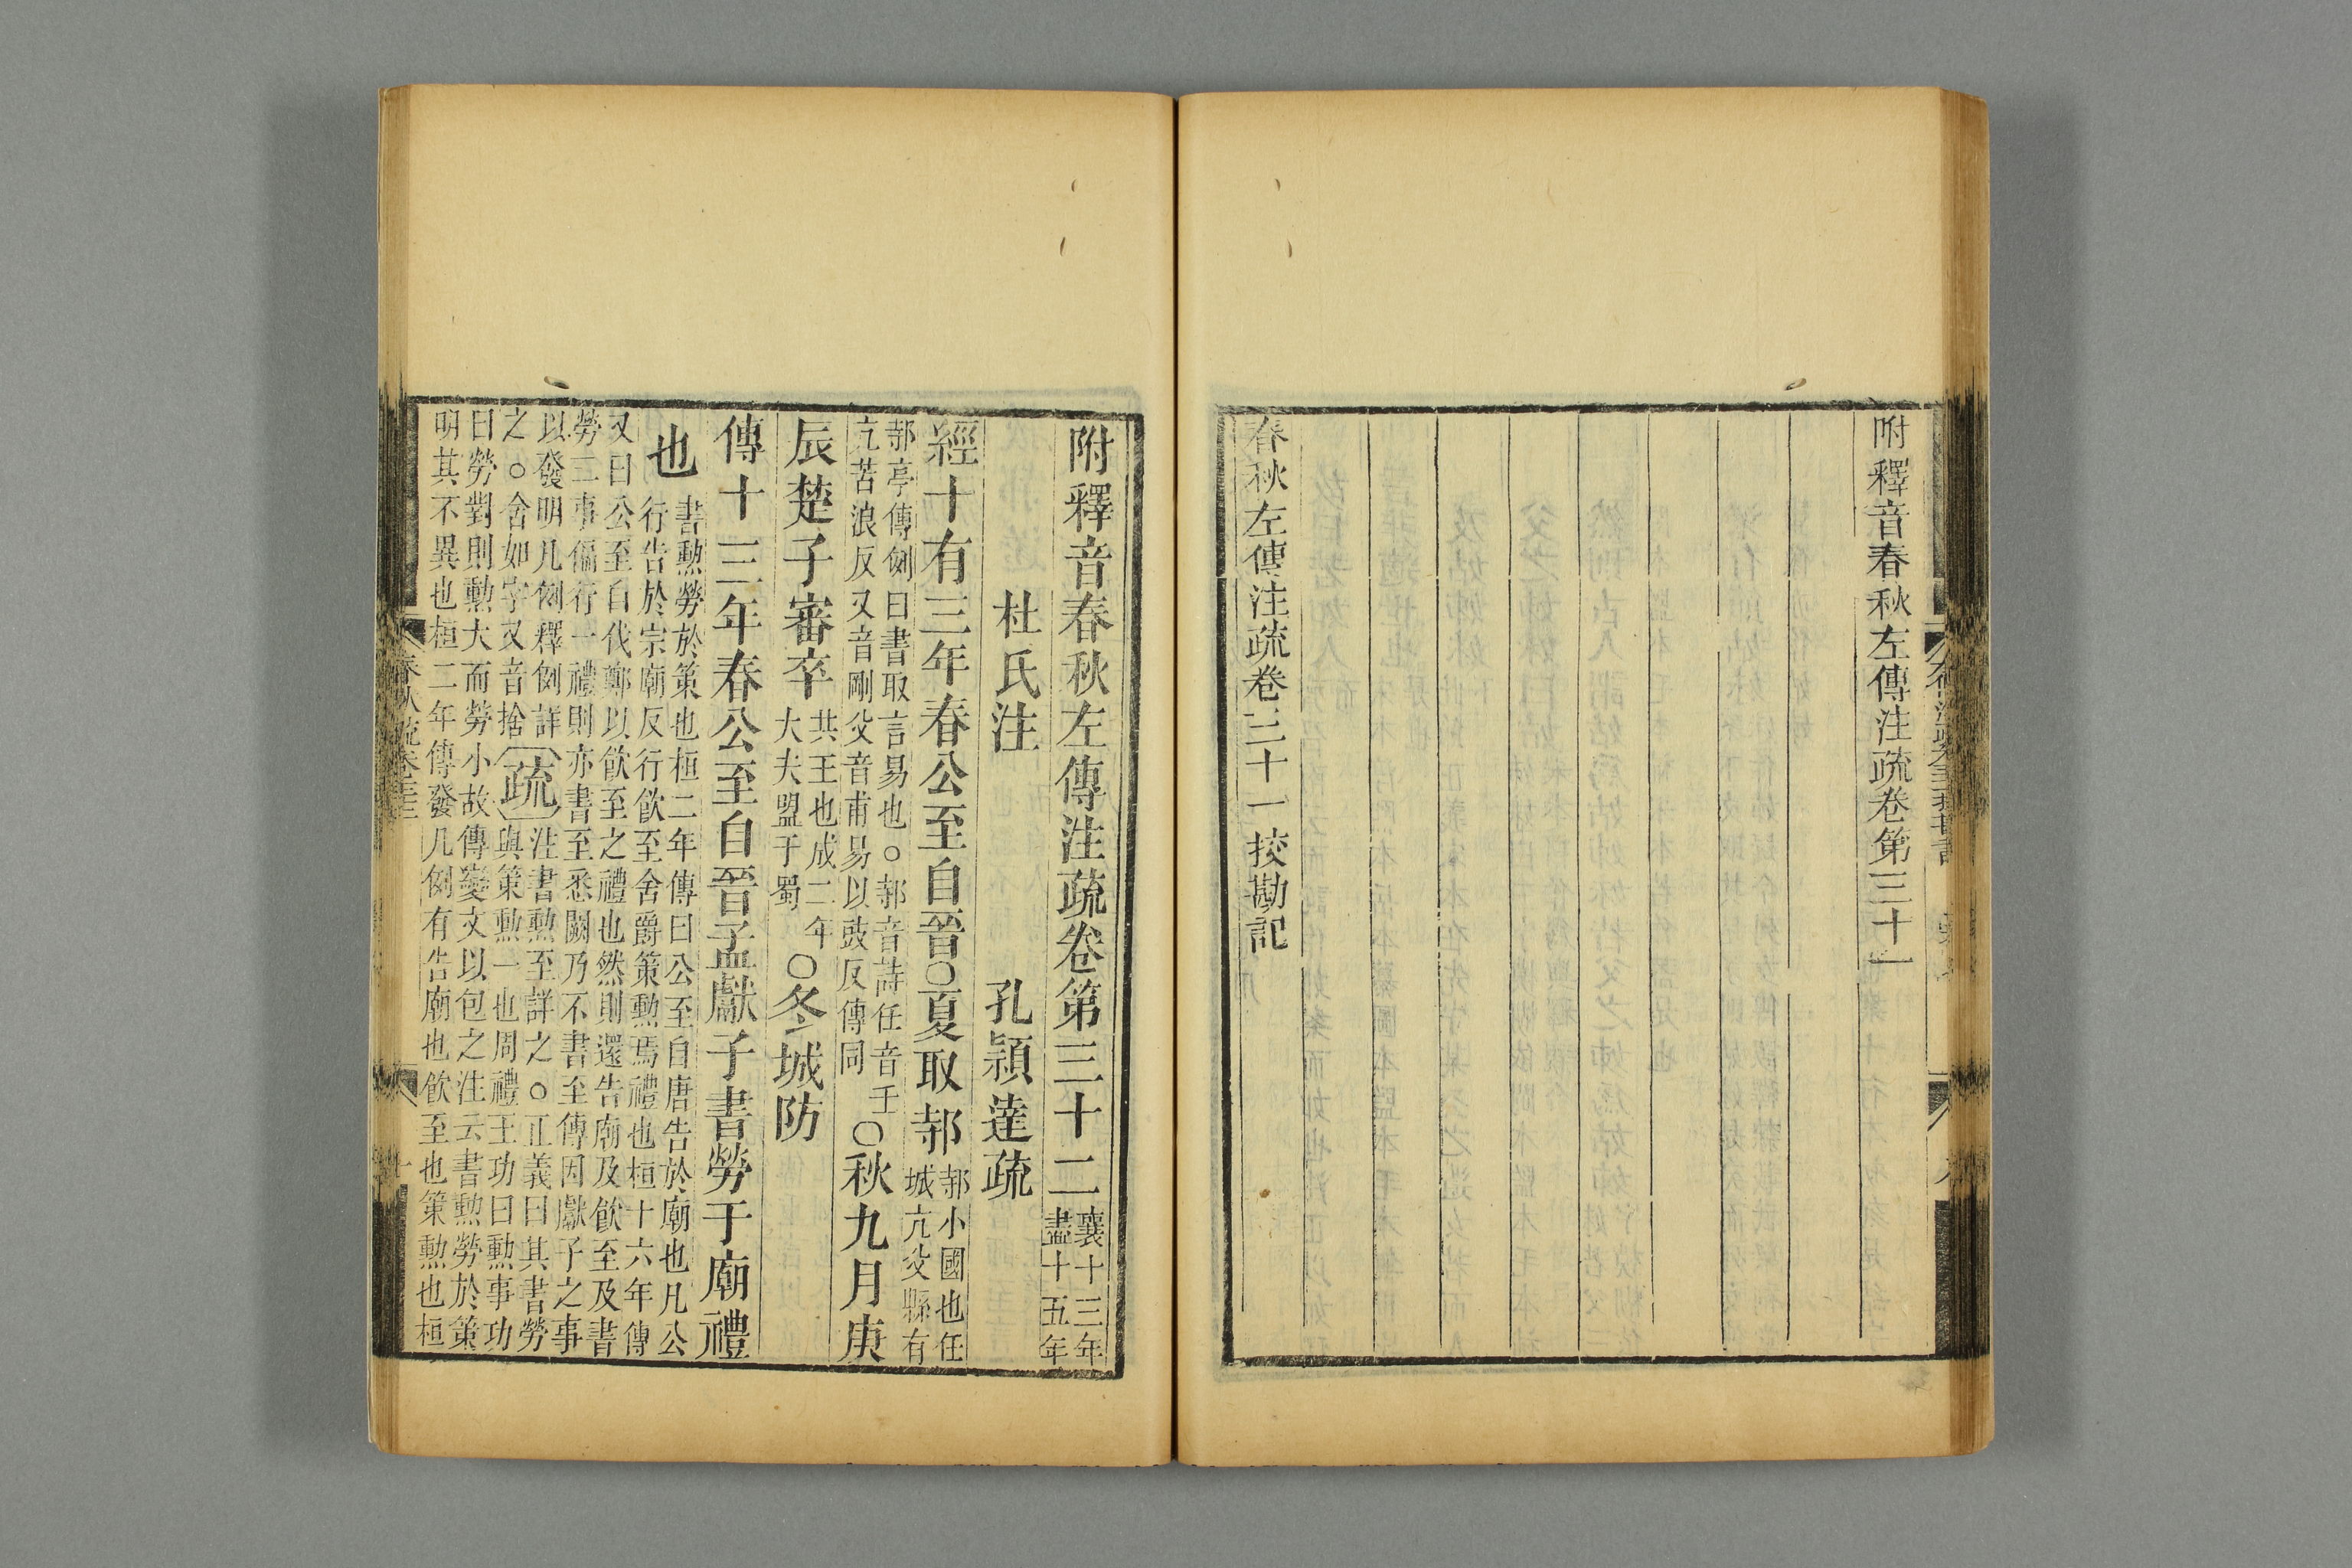 附釋音春秋左傳注疏卷第三十一
春秋左傳注疏卷三十一挍勘記
附釋音春秋左傳注疏卷第三十二
襄十三年
盡十五年
杜氏注
孔穎達疏
經十有三年春公至自晉○夏取邿
邿小國也任
城亢父縣有
邿亭傳例曰書取言易也○邿音詩任音壬
亢苦浪反又音剛父音甫易以豉反傳同
○秋九月庚
辰楚子審卒
共王也成二年
大夫盟于蜀
○冬城防
傳十三年春公至自晉孟獻子書勞于廟禮
也
書勳勞於策也桓二年傳曰公至自唐告於廟也凡公
行告於宗廟反行飮至舍爵策勳焉禮也桓十六年傳
又曰公至自伐鄭以飮至之禮也然則還告廟及飮至及書
勞三事偏行一禮則亦書至悉闕乃不書至傳因獻子之事
以發明凡例釋例詳
之○舍如字又音捨
疏
注書勳至詳之○正義曰其書勞
與策勳一也周禮王功曰勳事功
曰勞對則勳大而勞小故傳變文以包之注云書勳勞於策
明其不異也桓二年傳發凡例有告廟也飮至也策勳也桓